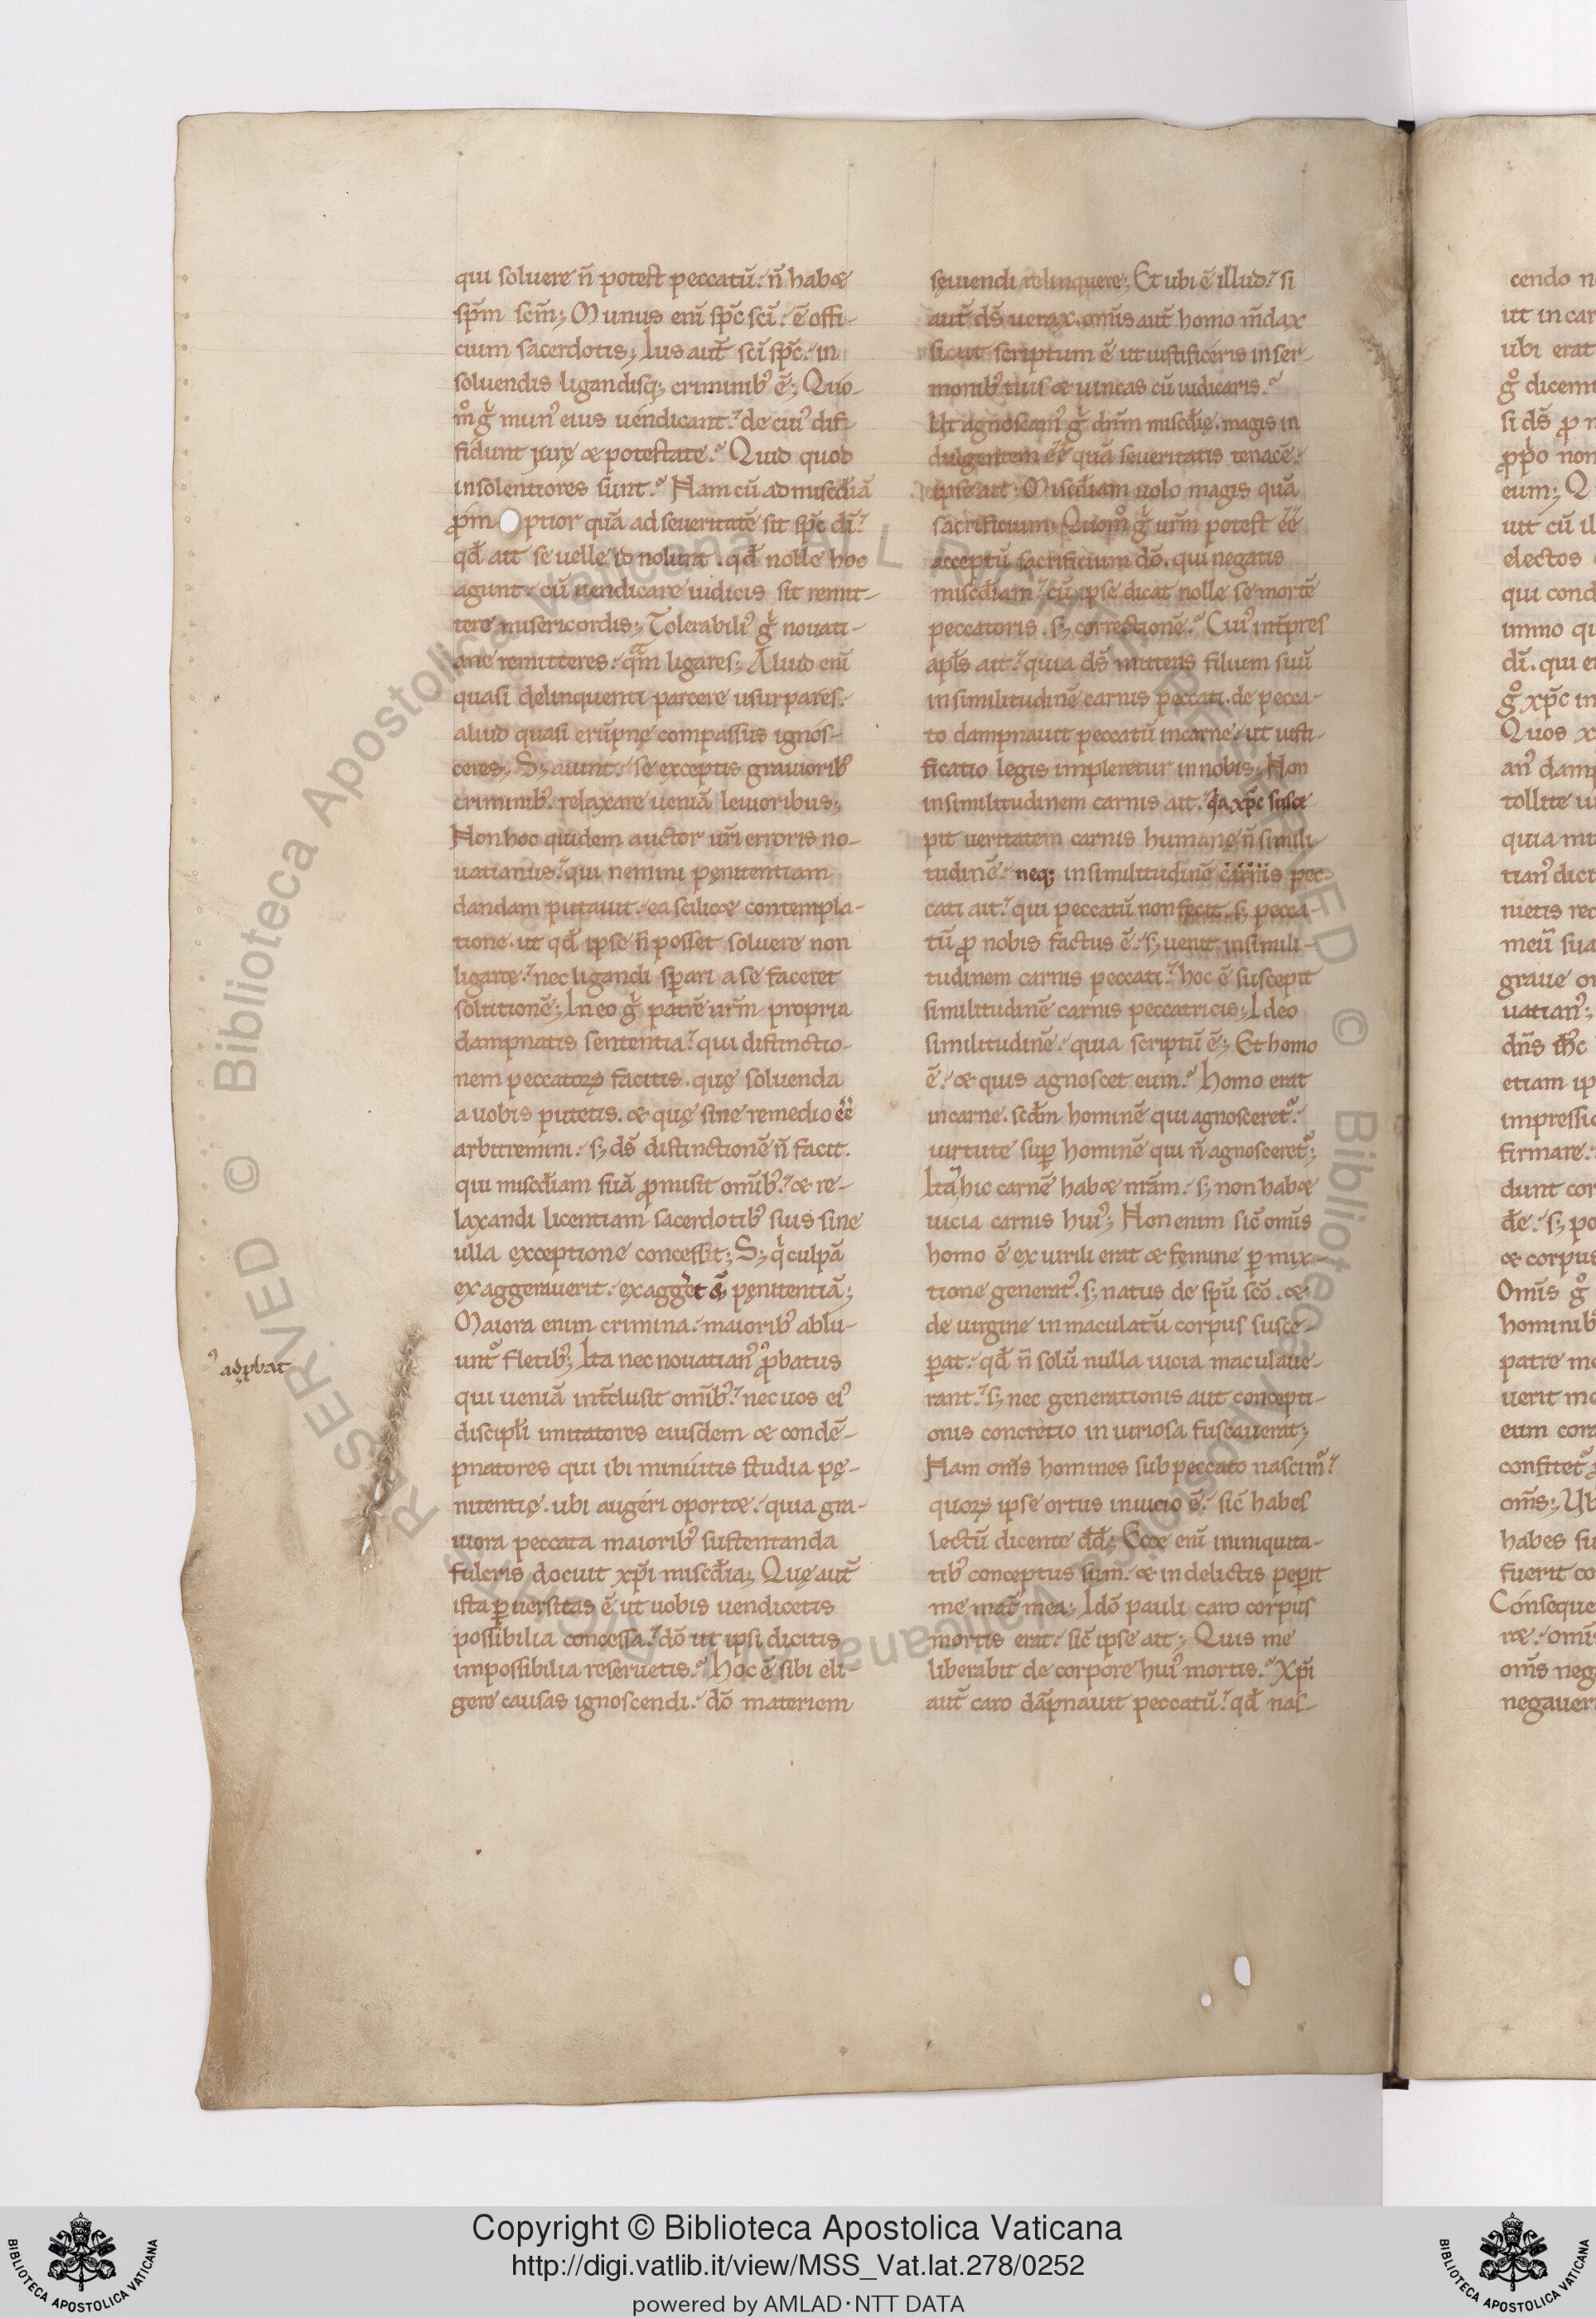 qui soluere n̄ potest peccatū. n̄ habet
sp̄m sc̄m; Munus eni̅ sp̄c sc̄i. ē offi-
cium sacerdotis; Ius aut̄ sc̄i sp̄c. in
soluendis ligandisq; criminib᾽ ē; Quo-
m̊ gͥ mun᾽ eius uendicant. de cui᾽ difi-
fidunt iurę et potestate. Quid quod
insolentiores sunt. Nam cū ad misc̄diā
p̄m ptior quā ad seueritatē sit sp̄c dī.
qd̄ ait se uelle id nolunt. qd̄ nolle hoc
agunt. cū uendicare iudicis sit remit-
tere misericordis; Tolerabili᾽ gͥ nouati-
ane remitteres. qͣm ligares; Aliud eni̅
quasi delinquenti parcere usurpares.
aliud quasi erūpnę compassus ignos-
ceres; S; aiunt. se exceptis grauiorib᾽
criminib᾽. relaxare ueniā leuioribus;
Non hoc quidem auctor ur̄i erroris no-
uatianus. qui nemini pęnitentiam
dandam putauit. ea scilicet contempla-
tione. ut qd̄ ipse n̄ posset soluere non
ligaret. nec ligandi sperari a se faceret
solutionē; In eo gͥ patrē ur̄m propria
dampnatis sententia. qui distinctio-
nem peccatoꝝ facitis. quę soluenda
a uobis putetis. et quę sine remedio ēē
arbitremini. s; ds̄ distinctionē n̄ facit.
qui misc̄diam suā ꝓmisit omib᾽. et re-
laxandi licentiam sacerdotib᾽ suis sine
ulla exceptione concessit; S; qͥ culpā
exaggerauerit. exagget & pęnitentiā;
Maiora enim crimina. maiorib᾽ ablu-
unt᾽ fletib᾽; Ita nec nouatian᾽ ꝓbatus
adꝓbat
qui ueniā int̄clusit omib᾽. nec uos ei᾽
discipli imitatores eiusdem et condē-
pnatores qui ibi minuitis studia pę-
nitentię. ubi augeri oportet. quia gra-
uiora peccata maiorib᾽ sustentanda
fulcris docuit xp̄i misc̄dia; Quę aut̄
ista ꝑuersitas ē ut uobis uendicetis
possibilia concessa. dō ut ipsi dicitis
impossibilia reseruetis. Hoc ē sibi eli-
gere causas ignoscendi. dō materiem
sęuiendi relinquere; Et ubi ē illud. si
aut̄ ds̄ uerax. omīs aut̄ homo m̄dax
sicut scriptum ē ut iustificeris in ser-
monib᾽ tuis et uincas cū iudicaris.
Ut agnoscam᾽ gͥ dn̄m misc̄dię. magis in
dulgentem ēē quā seueritatis tenacē.
ipse ait. Misc̄diam uolo magis quā
sacrificium; Quom̊ gͥ ur̄m potest ēē
acceptū sacrificium dō. qui negatis
misc̄diam. cū ipse dicat nolle se mortē
peccatoris. s; correctionē. Cui᾽ int̄pres
apl̄s ait. quia ds̄ mittens filium suū
in similitudinē carnis peccati. de pecca-
to dampnauit peccatū in carne. ut iusti-
ficatio legis impleretur in nobis; Non
in similitudinem carnis ait. qͥa xp̄c susce
pit ueritatem carnis humanę n̄ simili-
tudinē. neq; in similitudinē carnis pec-
cati ait. qui peccatū non fecit. s; pecca-
tū ꝓ nobis factus ē. s; uenit in simili-
tudinem carnis peccati. hoc ē suscepit
similitudinē carnis peccatricis; Ideo
similitudinē. quia scriptū ē; Et homo
ē. et quis agnoscet eum. Homo erat
in carne. scd̄m hominē qui agnosceret᾽.
uirtute suꝑ hominē qui n̄ agnosceret᾽;
Ita hic carnē habet nr̄am. s; non habet
uicia carnis hui᾽; Non enim sic̄ omīs
homo ē ex uirili erat et femine ꝑ mix-
tione generat᾽. s; natus de spū scō. et
de uirgine inmaculatū corpus susce-
ꝑat. qd̄ n̄ solū nulla uicia maculaue-
rant. s; nec generationis aut concepti-
onis concretio iniuriosa fuscauerat;
Nam oms̄ homines sub peccato nascim᾽.
quoꝝ ipse ortus in uicio ē. sic̄ habes
lectū dicente dd̄; Ecce eni̅ iniquita-
tib᾽ conceptus sum. et in delictis peꝑit
me mat̄ mea; Idō pauli caro corpus
mortis erat. sic̄ ipse ait; Quis me
liberabit de corpore hui᾽ mortis. Xp̄i
aut̄ caro dāpnauit peccatū. qd̄ nas-
Copyright © Biblioteca Apostolica Vaticana
http://digi.vatlib.it/view/MSS_Vat.lat.278/0252
powered by AMLAD·NTT DATA